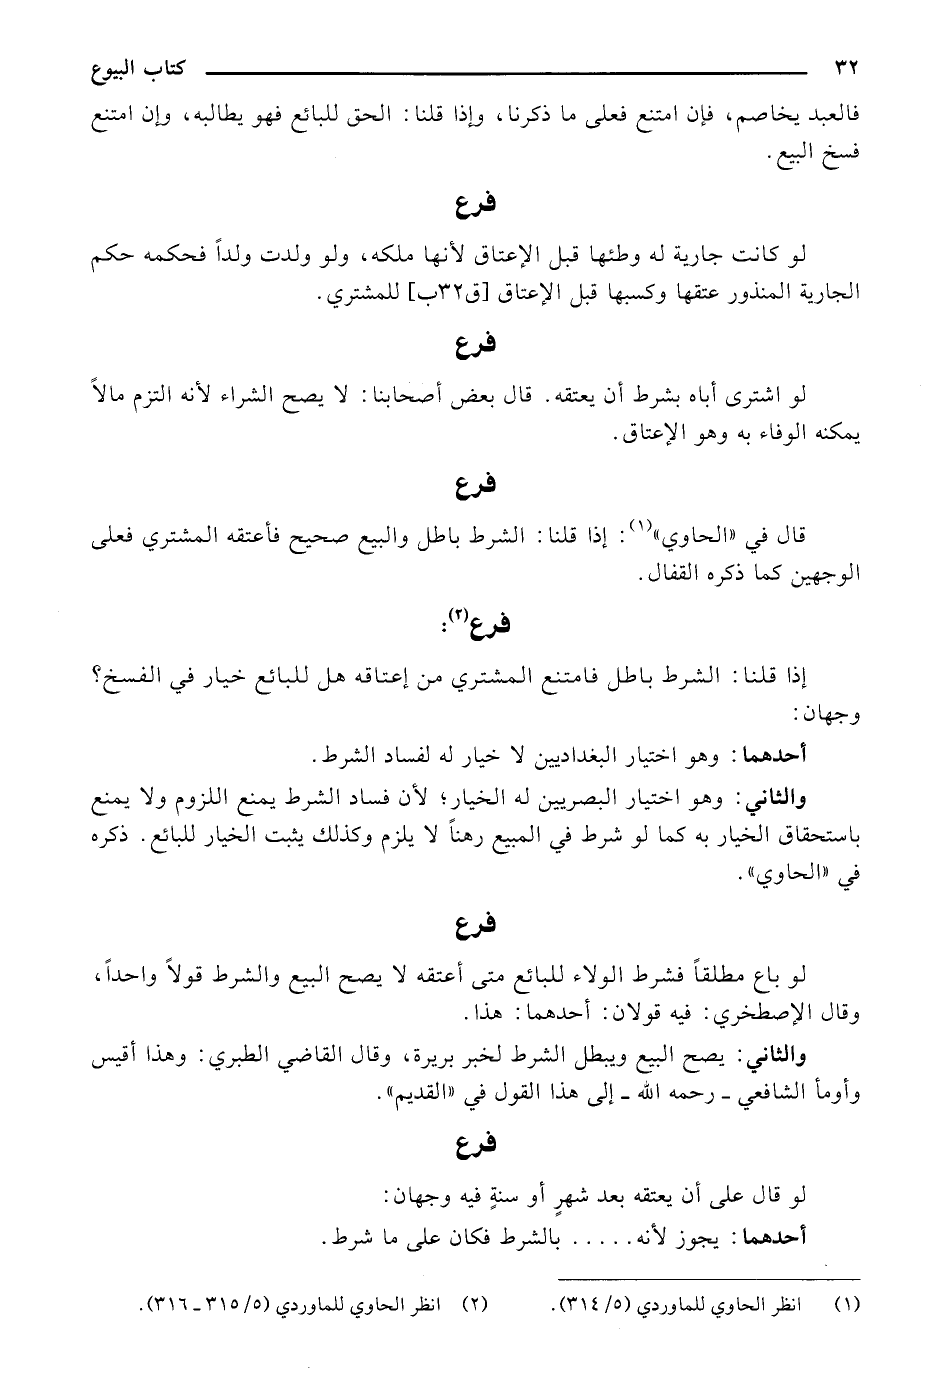 ٣٢ كتاب البيوع
فالعبد يخاصم، فإن امتنع فعلى ما ذكرنا، وإذا قلنا: الحق للبائع فهو يطالبه، وإن امتنع
فسخ البيع.
فرع
لو كانت جارية له وطئها قبل الإعتاق لأنها ملكه، ولو ولدت ولداً فحكمه حكم
الجارية المنذور عتقها وكسبها قبل الإعتاق [ق٣٢ب] للمشتري.
فرع
لو اشترى أباه بشرط أن يعتقه. قال بعض أصحابنا: لا يصح الشراء لأنه التزم مالاً
يمكنه الوفاء به وهو الإعتاق.
فرع
قال في «الحاوي»(١): إذا قلنا: الشرط باطل والبيع صحيح فأعتقه المشتري فعلى
الوجهين كما ذكره القفال.
فرع(٢):
إذا قلنا: الشرط باطل فامتنع المشتري من إعتاقه هل للبائع خيار في الفسخ؟
وجهان:
أحدهما: وهو اختيار البغداديين لا خيار له لفساد الشرط.
والثاني: وهو اختيار البصريين له الخيار؛ لأن فساد الشرط يمنع اللزوم ولا يمنع
باستحقاق الخيار به كما لو شرط في المبيع رهناً لا يلزم وكذلك يثبت الخيار للبائع. ذكره
في «الحاوي».
فرع
لو باع مطلقاً فشرط الولاء للبائع متى أعتقه لا يصح البيع والشرط قولاً واحداً،
وقال الإصطخري: فيه قولان: أحدهما: هذا.
والثاني: يصح البيع ويبطل الشرط لخبر بريرة، وقال القاضي الطبري: وهذا أقيس
وأومأ الشافعي ـ رحمه الله ـ إلى هذا القول في «القديم».
فرع
لو قال على أن يعتقه بعد شهرٍ أو سنةٍ فيه وجهان:
أحدهما: يجوز لأنه..... بالشرط فكان على ما شرط.
(١) انظر الحاوي للماوردي (٥/ ٣١٤). (٢) انظر الحاوي للماوردي (٥/ ٣١٥ ـ ٣١٦).